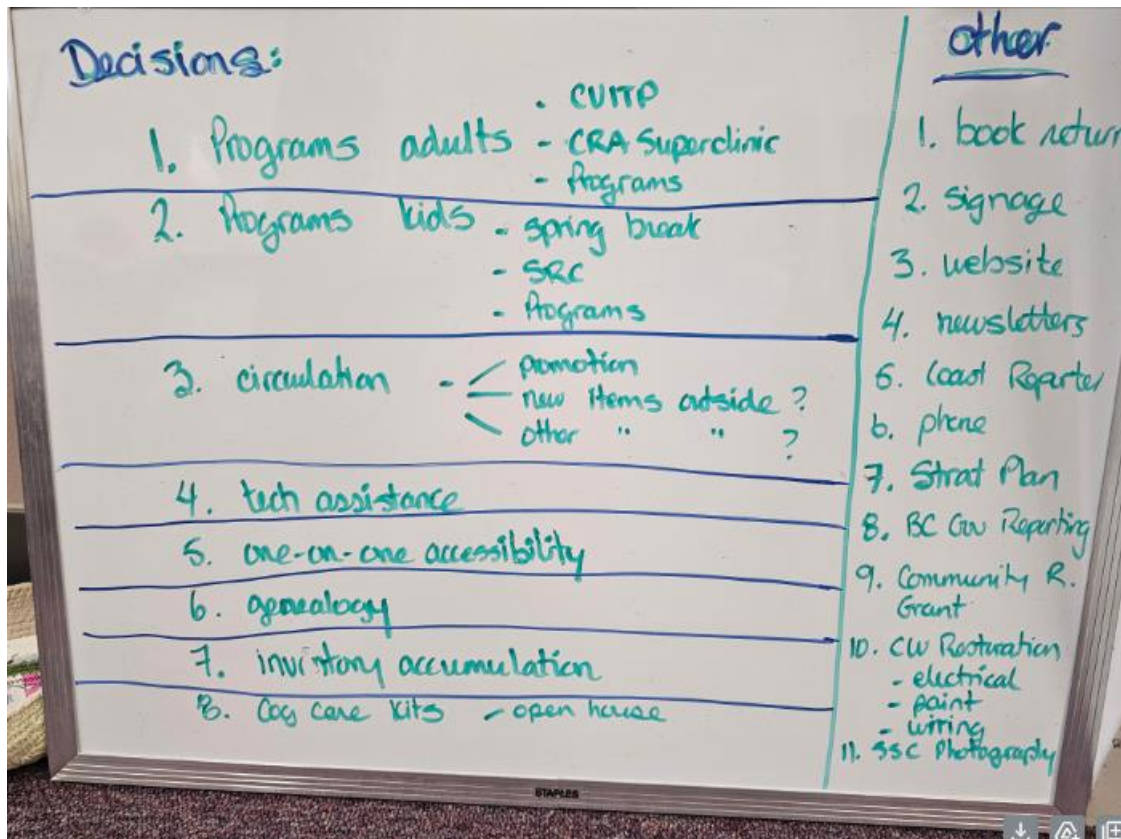 Decisions:
1. Programs adults
. CVITP
- CRA Superclinic
- Programs
2. Programs kids
- spring break
- SRC
- Programs
3. circulation -
promotion
new items outside ?
other " " ?
4. tech assistance
5. one-on-one accessibility
6. genealogy
7. inventory accumulation
8. Cog care kits - open house
other
1. book return
2. signage
3. website
4. newsletters
5. Coast Reporter
6. phone
7. Strat Plan
8. BC Gov Reporting
9. Community R.
Grant
10. CW Restoration
- electrical
- paint
- wiring
11. SSC Photography
STAPLES